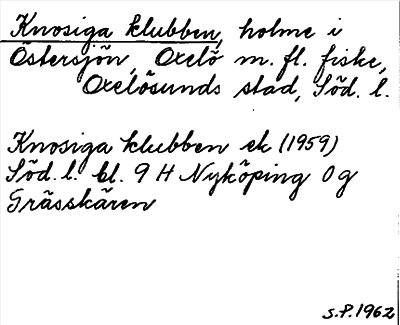 Knosiga klubben, holme i
Östersjön, Oxelö m. fl. fiske,
Oxelösunds stad, Söd. l.
Knosiga klubben ek (1959)
Söd. l. bl. 9 H Nyköping Og
Grässkären
S.P. 1962